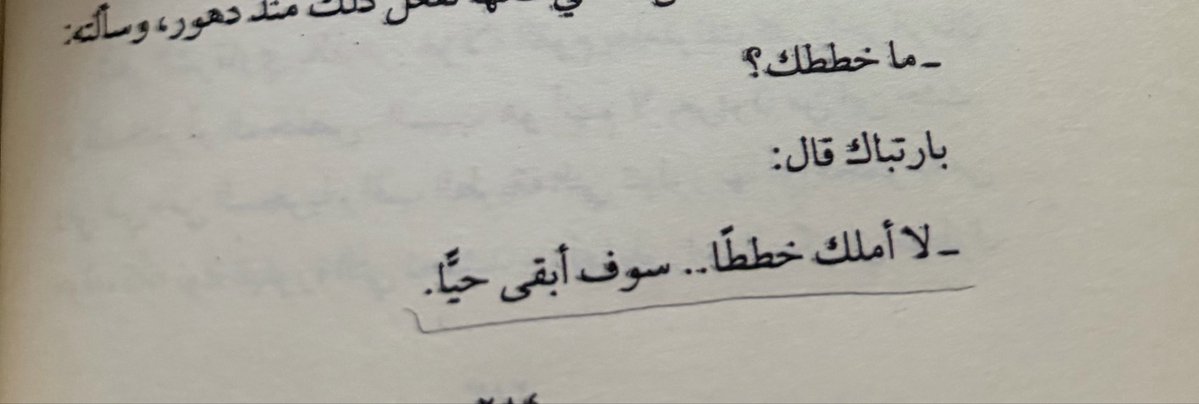 ذلك منذ دهور، وسألته:
ـ ما خططك؟
بارتباك قال:
ـ لا أملك خططًا.. سوف أبقى حيًّا.